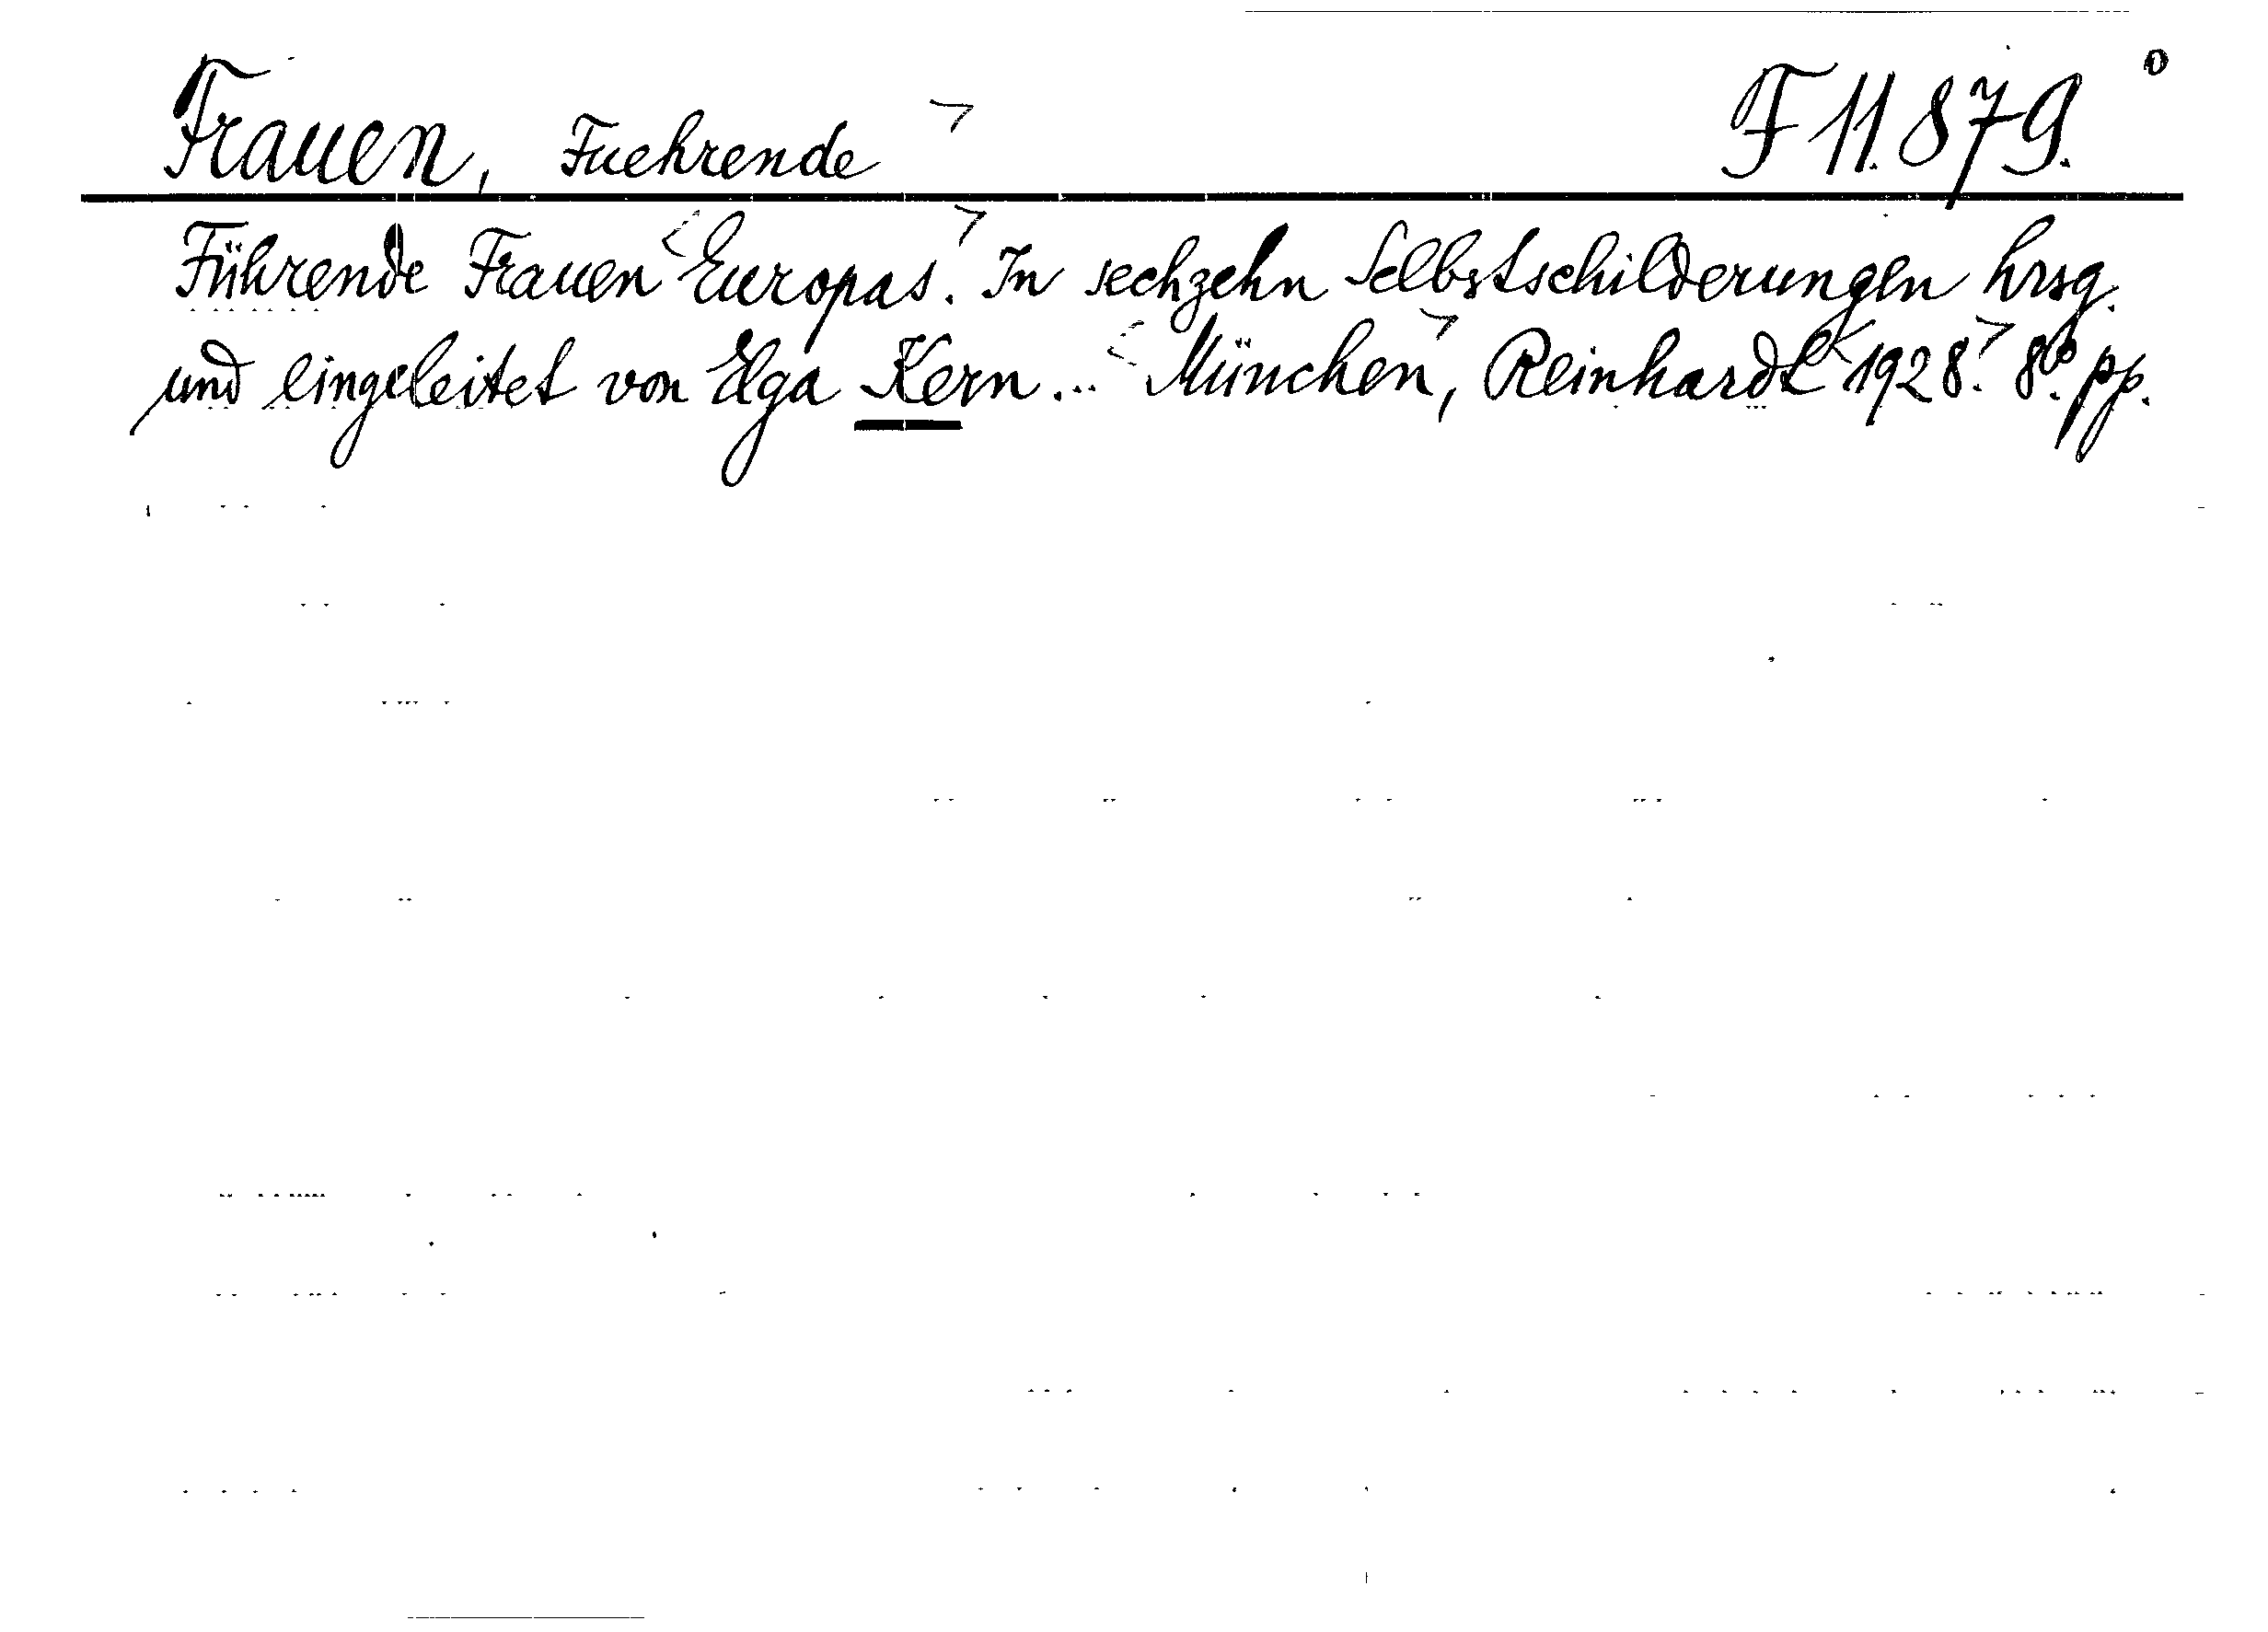 Frauen, Fuehrende F 11.879.
Führende Frauen Europas. In sechzehn Selbstschilderungen hrsg.
und eingeleitet von Elga Kern... München, Reinhardt 1928. 8° pp.